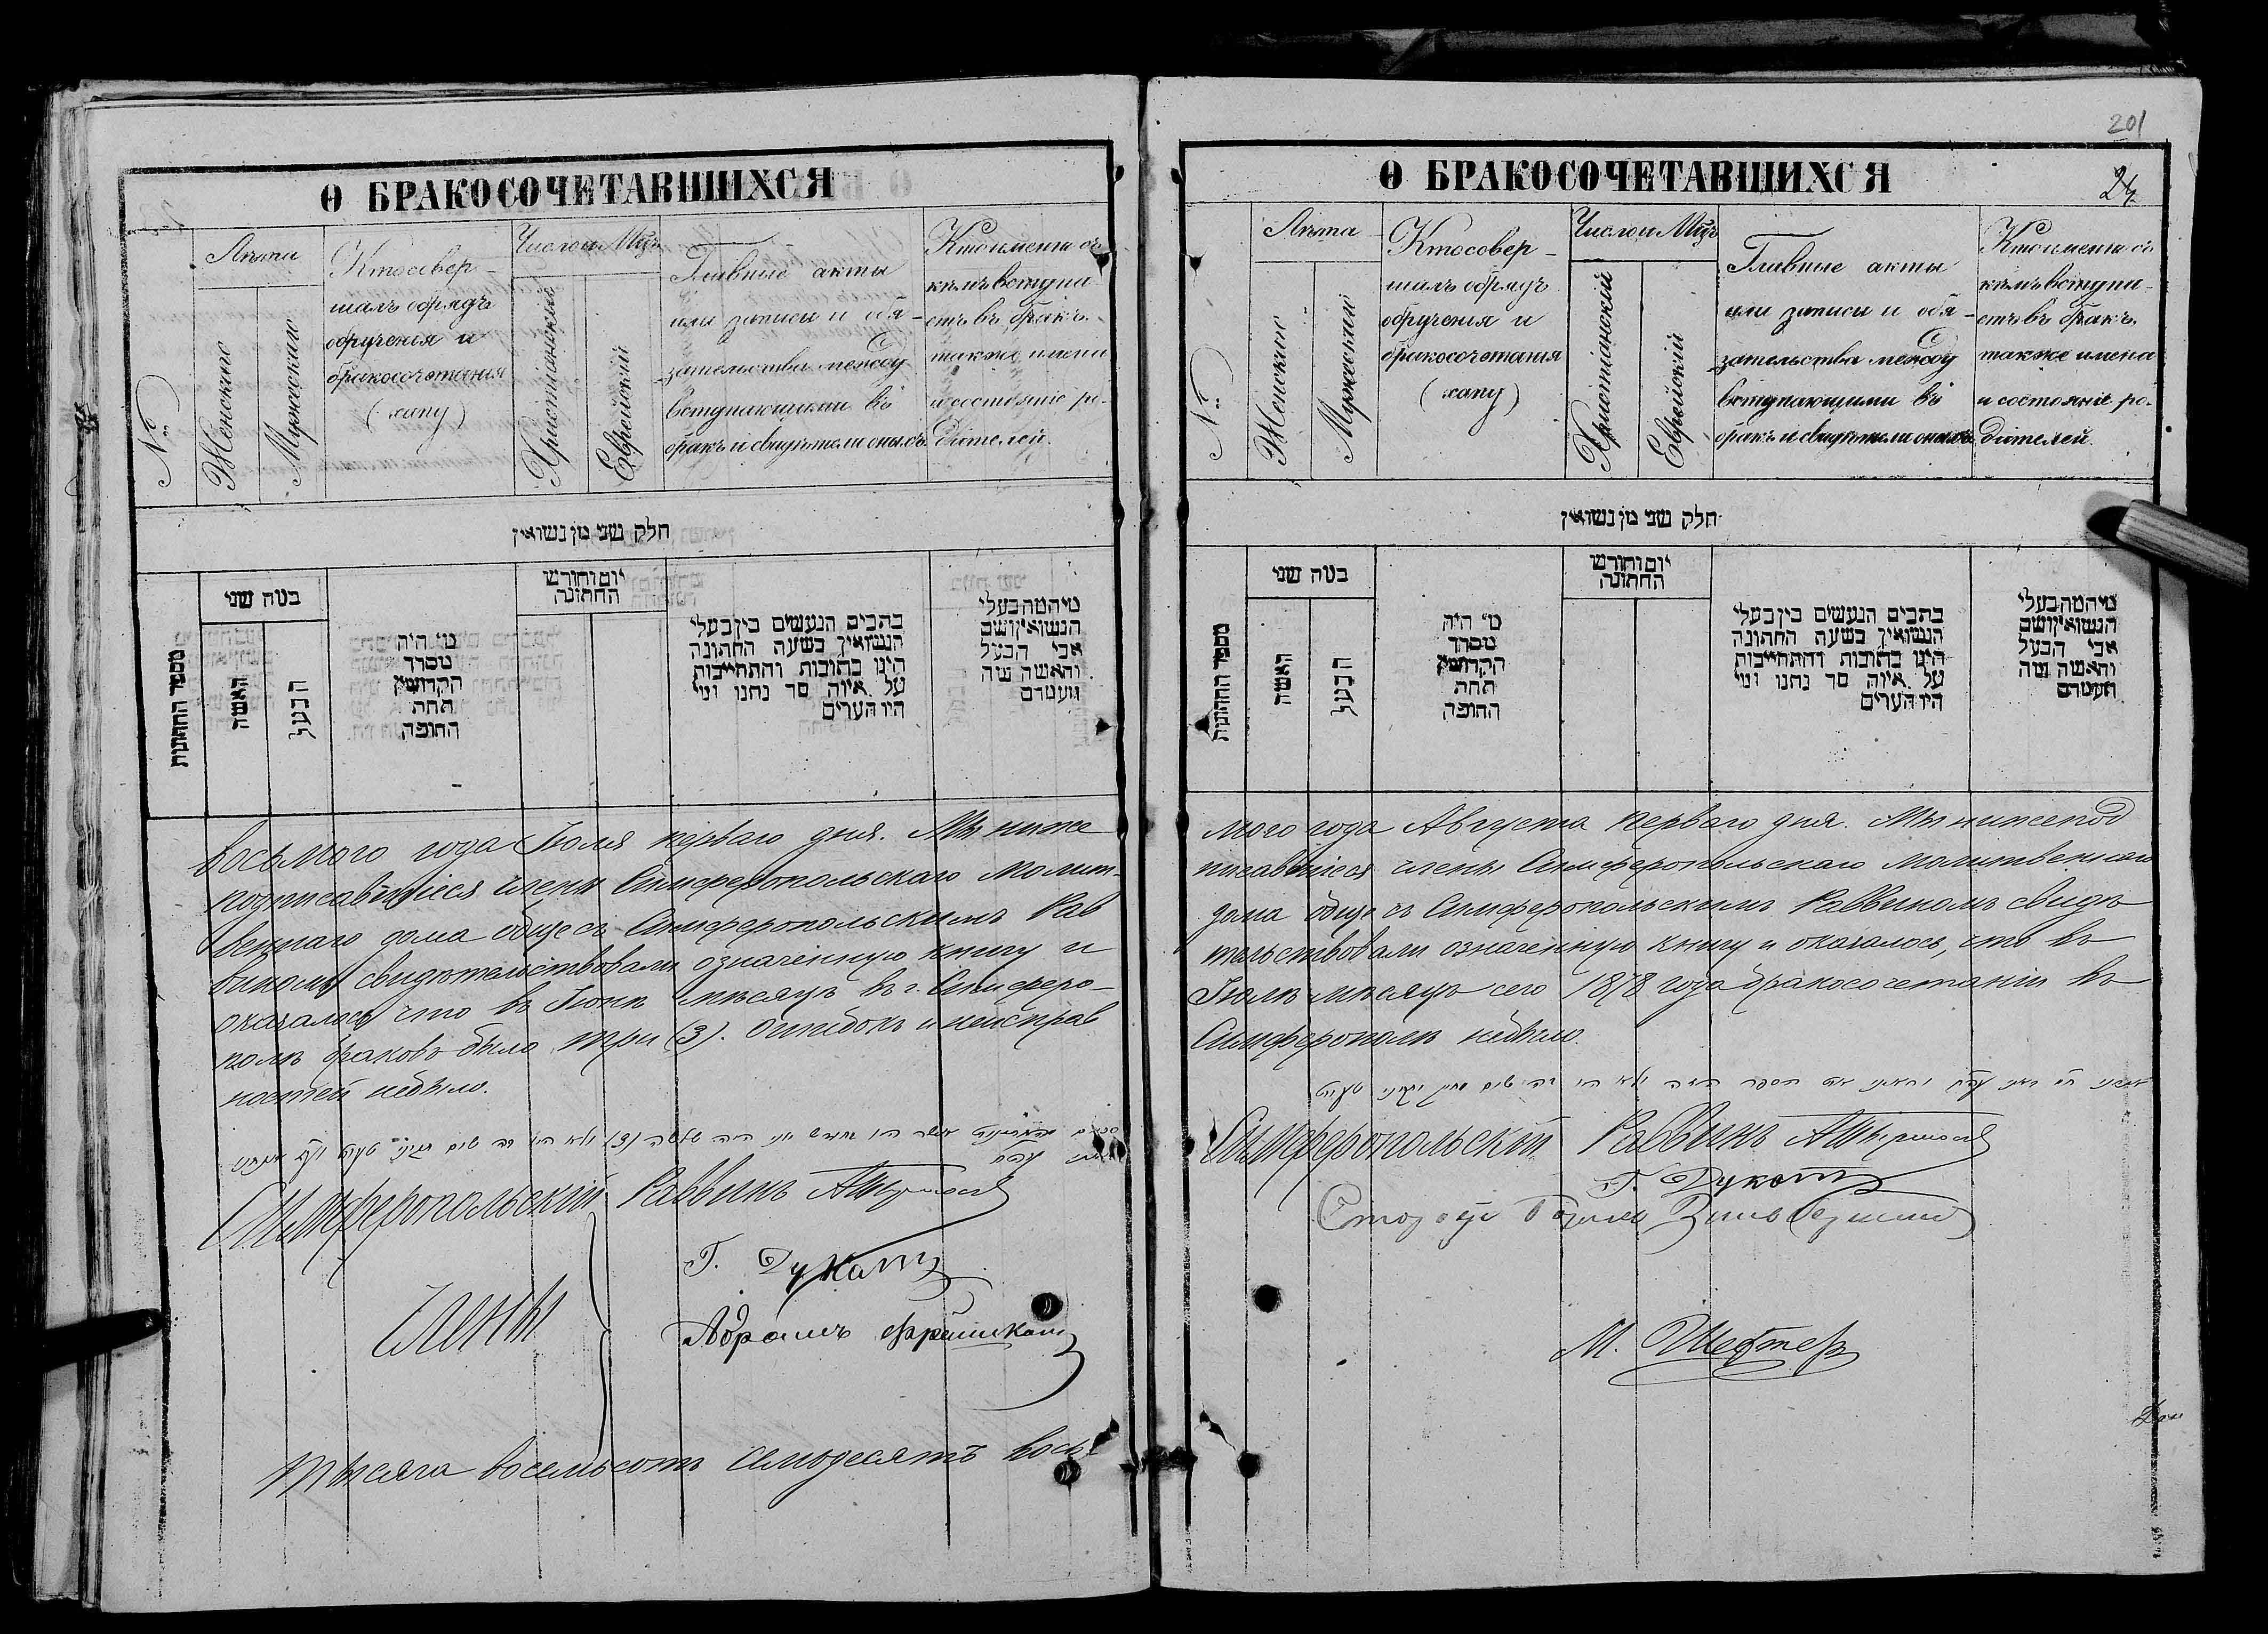 О БРАКОСОЧЕТАВШИХСЯ
№
Лѣта
Женскаго
Мужескаго
Кто совер-
шалъ обрядъ
обрученія и
бракосочетанія
(хапу)
Число и Мцъ
Христіанскій
Еврейскій
Главные акты
или записи и обя-
зательства между
вступающими въ
бракъ и свидѣтели оныхъ
Кто именно съ
кѣмъ вступа
етъ въ бракъ.
также имена
и состояніе ро-
дителей.
חלק שני מן נשואין
מספר החתונות
במה שני
האשה
הבעל
מי היה
מסדר
הקדושין
תחת
החופה
יום וחודש
החתונה
בתבים הנעשים בין בעלי
הנשואין בשעה החתונה
היינו כתובות והתחייבות
על איזה סך נתנו ומי
היו העדים
מי המה בעלי
הנשואין ושם
אבי הבעל
והאשה ומה
מעמדם
восьмого года Іюля перваго дня. Мы ниже
подписавшіеся члены Симферопольскаго Молит-
веннаго дома обще съ Симферопольскимъ Рав
виномъ свидѣтельствовали означенную книгу и
оказалось что въ Іюнѣ мѣсяцѣ въ г. Симферо-
полѣ браковъ было три (3). Ошибокъ и неисправ
ностей небыло.
Симферопольскій Раввинъ
Г. Дукатъ
Члены
Абрамъ
тысяча восемьсотъ семьдесятъ вось-
201
О БРАКОСОЧЕТАВШИХСЯ
24
№
Лѣта
Женскаго
Мужескаго
Кто совер-
шалъ обрядъ
обрученія и
бракосочетанія
(хапу)
Число и Мцъ
Христіанскій
Еврейскій
Главные акты
или записи и обя-
зательства между
вступающими въ
бракъ и свидѣтели оныхъ
Кто именно съ
кѣмъ вступа-
етъ въ бракъ.
также имена
и состояніе ро-
дителей.
חלק שני מן נשואין
מספר החתונות
במה שני
האשה
הבעל
מי היה
מסדר
הקדושין
תחת
החופה
יום וחודש
החתונה
בתבים הנעשים בין בעלי
הנשואין בשעה החתונה
היינו כתובות והתחייבות
על איזה סך נתנו ומי
היו העדים
מי המה בעלי
הנשואין ושם
אבי הבעל
והאשה ומה
מעמדם
мого года Августа перваго дня. Мы нижепод
писавшіеся члены Симферопольскаго Молитвеннаго
дома обще съ Симферопольскимъ Раввиномъ свидѣ
тельствовали означенную книгу и оказалось, что въ
Іюлѣ мѣсяцѣ сего 1878 года бракосочетаній въ
Симферополѣ небыло.
Симферопольскій Раввинъ
Г. Дукатъ
М. Шехтеръ